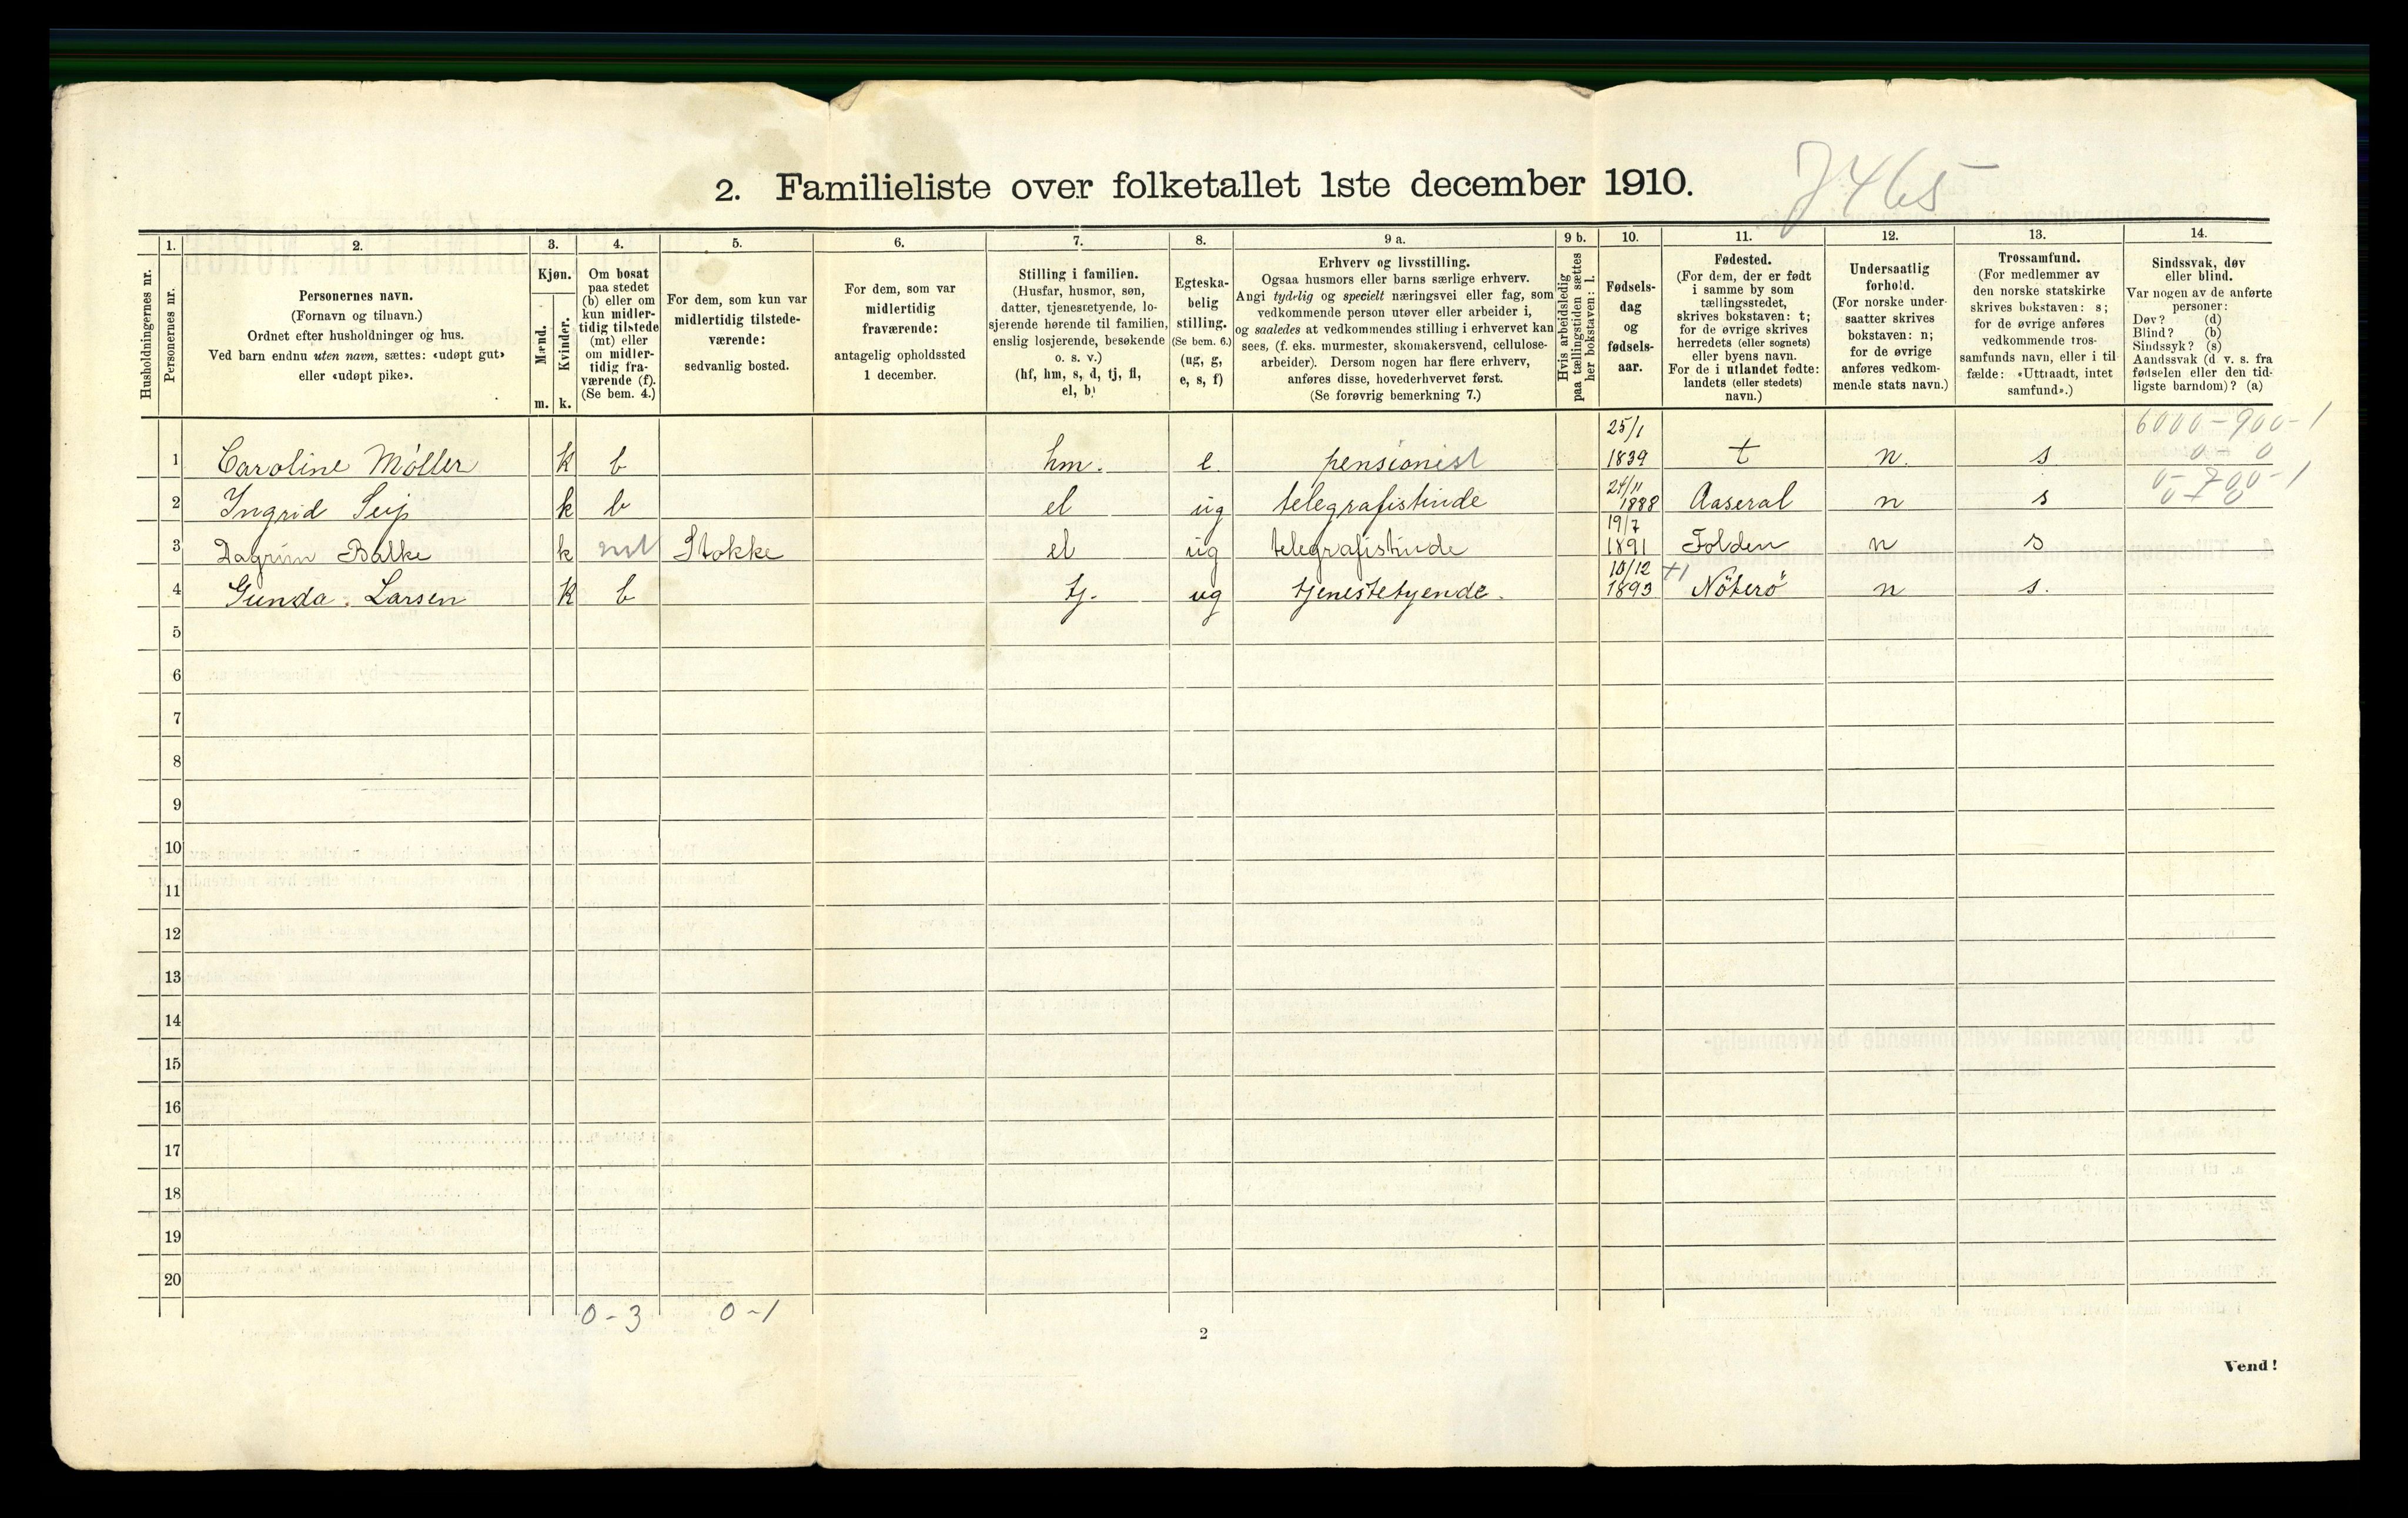 2. Familieliste over folketallet 1ste december 1910.
7465
Husholdningernes nr.
1.
Personernes nr.
2.
Personernes navn.
(Fornavn og tilnavn.)
Ordnet efter husholdninger og hus.
Ved barn endnu uten navn, sættes: «udøpt gut»
eller «udøpt pike».
3.
Kjøn.
Mænd.
m.
Kvinder.
k.
4.
Om bosat
paa stedet
(b) eller om
kun midler-
tidig tilstede
(mt) eller
om midler-
tidig fra-
værende (f).
(Se bem. 4.)
5.
For dem, som kun var
midlertidig tilstede-
værende:
sedvanlig bosted.
6.
For dem, som var
midlertidig
fraværende:
antagelig opholdssted
1 december.
7.
Stilling i familien.
(Husfar, husmor, søn,
datter, tjenestetyende, lo-
sjerende hørende til familien,
enslig losjerende, besøkende
o. s. v.)
(hf, hm, s, d, tj, fl,
el, b)
8.
Egteska-
belig
stilling.
(Se bem. 6.)
(ug, g,
e, s, f)
9 a.
Erhverv og livsstilling.
Ogsaa husmors eller barns særlige erhverv.
Angi tydelig og specielt næringsvei eller fag, som
vedkommende person utøver eller arbeider i,
og saaledes at vedkommendes stilling i erhvervet kan
sees, (f. eks. murmester, skomakersvend, cellulose-
arbeider). Dersom nogen har flere erhverv,
anføres disse, hovederhvervet først.
(Se forøvrig bemerkning 7.)
9 b.
Hvis arbeidsledig
paa tællingstiden sættes
her bokstaven: l.
10.
Fødsels-
dag
og
fødsels-
aar.
11.
Fødested.
(For dem, der er født
i samme by som
tællingsstedet,
skrives bokstaven: t;
for de øvrige skrives
herredets (eller sognets)
eller byens navn.
For de i utlandet fødte:
landets (eller stedets)
navn.)
12.
Undersaatlig
forhold.
(For norske under-
saatter skrives
bokstaven: n;
for de øvrige
anføres vedkom-
mende stats navn.)
13.
Trossamfund.
(For medlemmer av
den norske statskirke
skrives bokstaven: s;
for de øvrige anføres
vedkommende tros-
samfunds navn, eller i til-
fælde: «Uttraadt, intet
samfund».)
14.
Sindssvak, døv
eller blind.
Var nogen av de anførte
personer:
Døv? (d)
Blind? (b)
Sindssyk? (s)
Aandssvak (d. v. s. fra
fødselen eller den tid-
ligste barndom)? (a)
6000-900-1
0 0
1 Caroline Möller k b hm. e. pensionist 25/1 1839 t n. s
0-700-1
0 0
2 Ingrid Seip k b el ug telegrafistinde 24/11 1888 Aaseral n s
3 Dagrun Balke k mt Stokke el ug telegrafistinde 19/7 1891 Folden n s
4 Gunda Larsen k b tj. ug tjenestetyende. 10/12 1893 +1 Nöterö n s.
5
6
7
8
9
10
11
12
13
14
15
16
17
18
19
20
0-3 0-1
2
Vend!